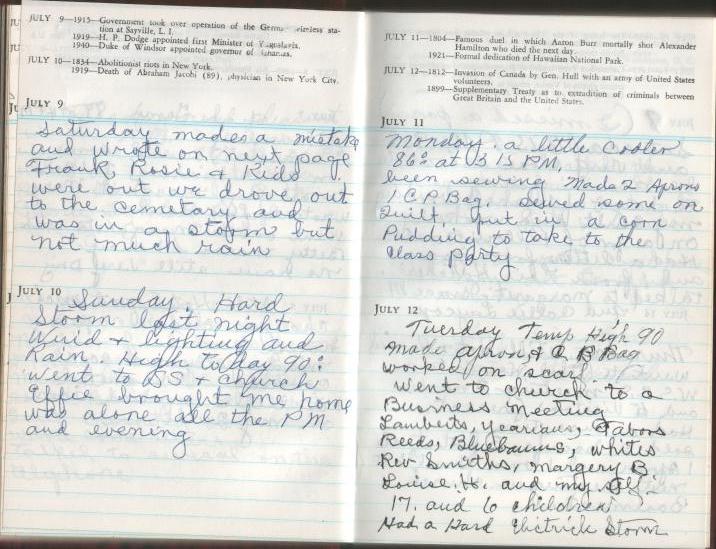 JULY 9—1915—Government took over operation of the German wireless sta-
tion at Sayville, L. I.
1919—H. P. Dodge appointed first Minister of Yugoslavia.
1940—Duke of Windsor appointed governor of Bahamas.
JULY 10—1834—Abolitionist riots in New York.
1919—Death of Abraham Jacobi (89), physician in New York City.
JULY 9
Saturday mades a mistake
and wrote on next page
Frank, Rosie & Kids
were out we drove out
to the cemetary and
was in a storm but
not much rain
JULY 10
Sunday. Hard
Storm last night
Wind & lighting and
Rain High to day 90°
went to SS & church
Effie brought me home
was alone all the PM
and evening
JULY 11—1804—Famous duel in which Aaron Burr mortally shot Alexander
Hamilton who died the next day.
1921—Formal dedication of Hawaiian National Park.
JULY 12—1812—Invasion of Canada by Gen. Hull with an army of United States
volunteers.
1899—Supplementary Treaty as to extradition of criminals between
Great Britain and the United States.
JULY 11
Monday. a little cooler
86° at 3 15 PM,
been sewing Made 2 Aprons
1 C P Bag, sewed some on
Quilt, put in a corn
Pudding to take to the
Class party
JULY 12
Tuesday Temp High 90
made apron, & C B Bag
worked on scarf.
went to church to a
Business meeting
Lamberts, Yearians, Tabors
Reeds, Bluebaums, whites
Rev Smiths, Margery B.
Louise H. and my self.
17. and 6 children
Had a Hard Electrick Storm